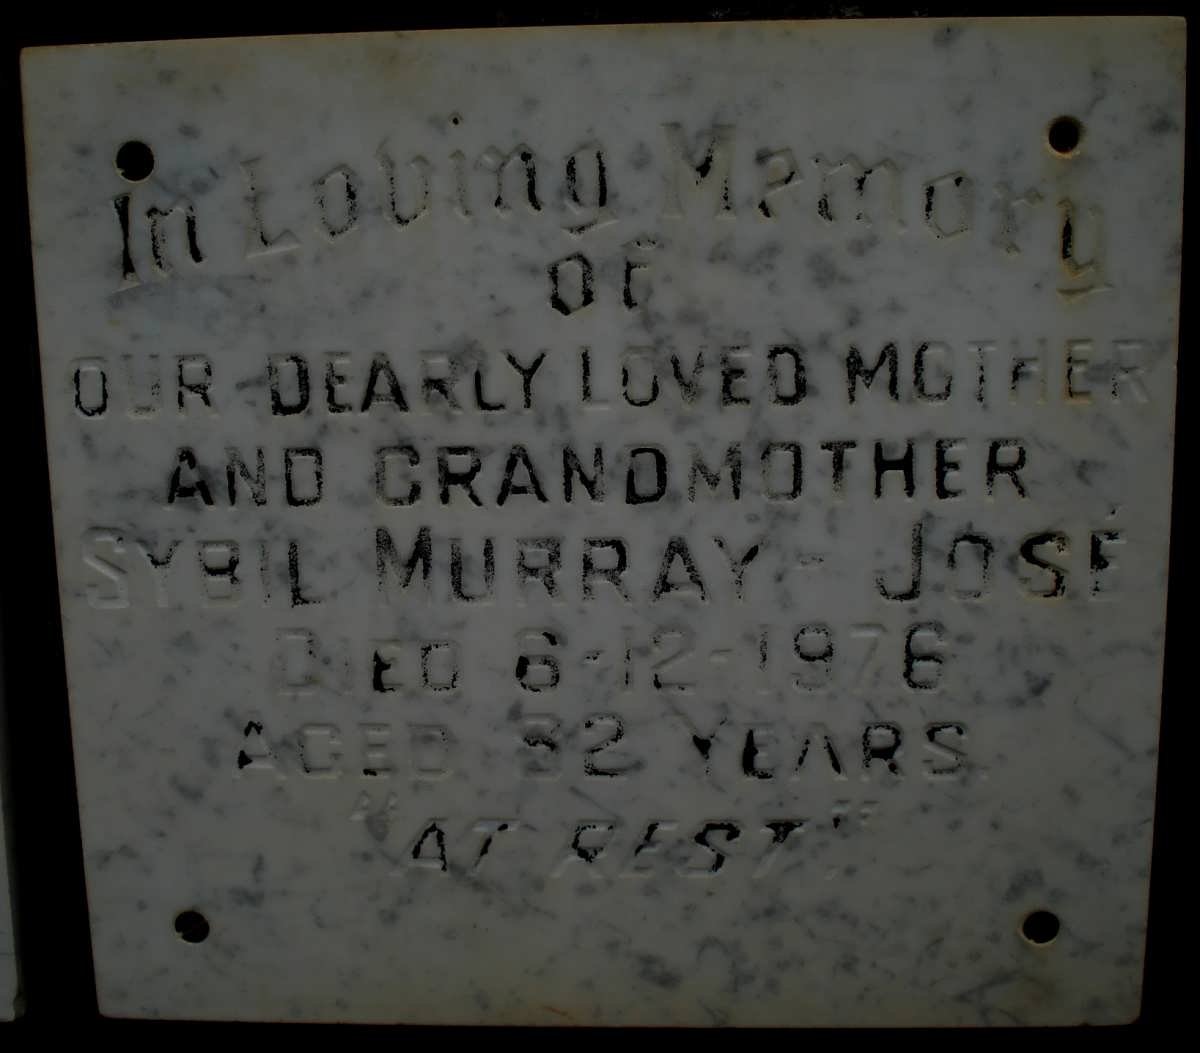 In Loving Memory
of
OUR DEARLY LOVED MOTHER
AND GRANDMOTHER
SYBIL MURRAY - JOSÉ
DIED 6-12-1976
AGED 82 YEARS.
"AT REST."